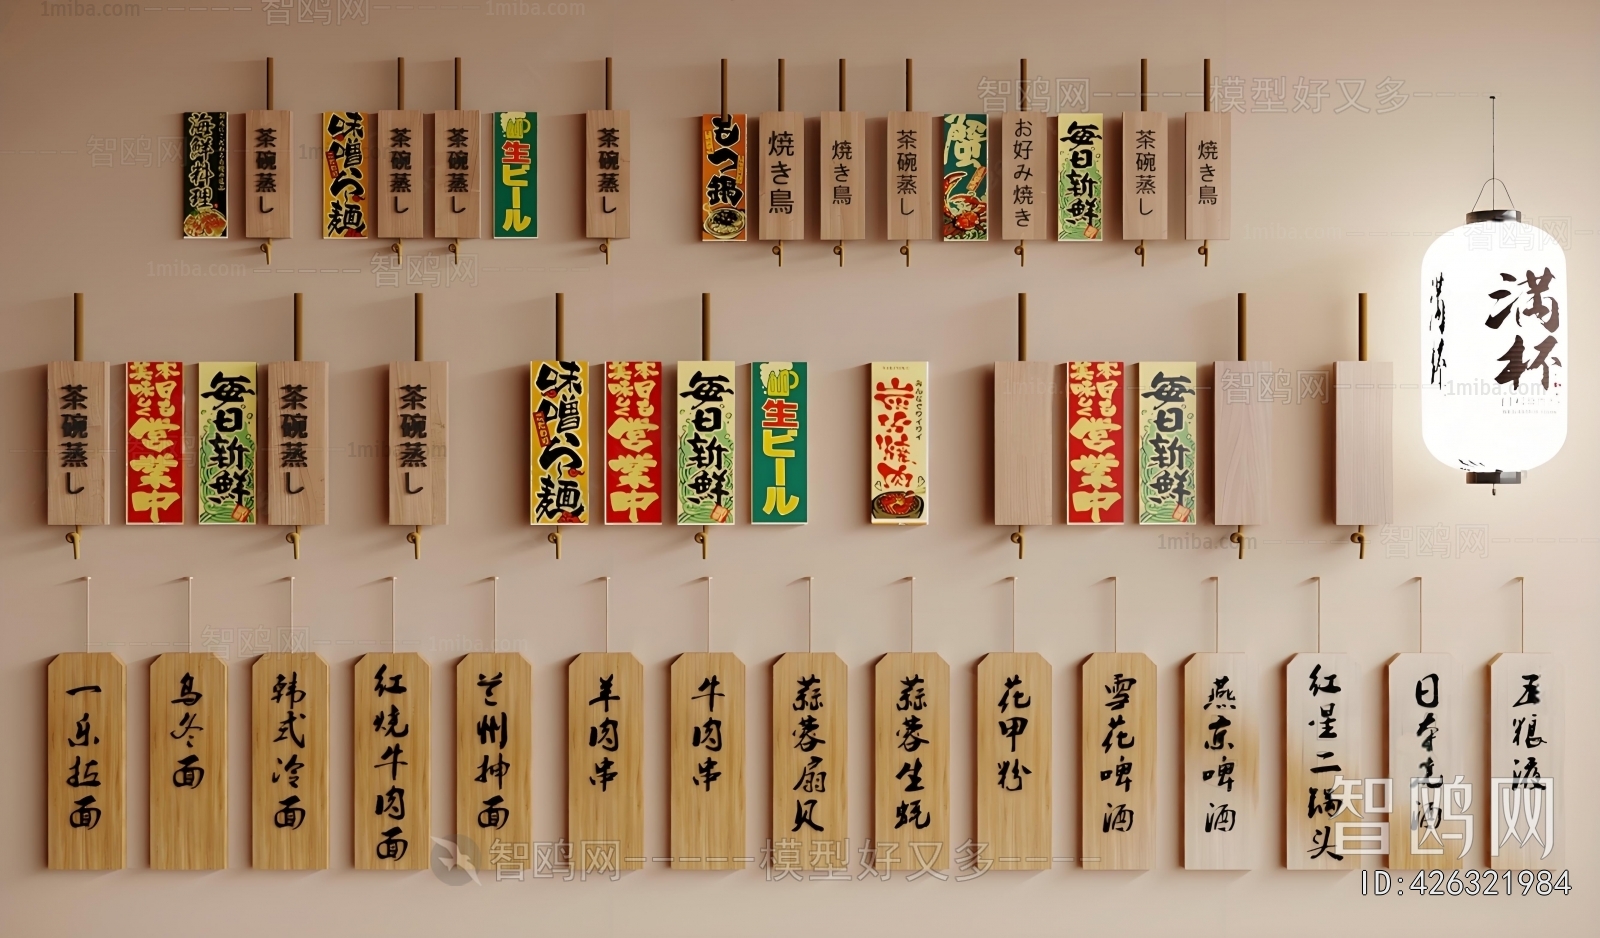 海鮮料理
茶碗蒸し
味噌らー麺
こだわり
茶碗蒸し
茶碗蒸し
生ビール
茶碗蒸し
もつ鍋
焼き鳥
焼き鳥
茶碗蒸し
蟹
お好み焼き
毎日新鮮
茶碗蒸し
焼き鳥
茶碗蒸し
本日も美味しく営業中
毎日新鮮
茶碗蒸し
茶碗蒸し
味噌らー麺
こだわり
本日も美味しく営業中
毎日新鮮
生ビール
炭火焼肉
みんなでワイワイ
本日も美味しく営業中
毎日新鮮
满杯
满杯
一乐拉面
乌冬面
韩式冷面
红烧牛肉面
兰州抻面
羊肉串
牛肉串
蒜蓉扇贝
蒜蓉生蚝
花甲粉
雪花啤酒
燕京啤酒
红星二锅头
日本清酒
五粮液
智鸥网-----模型好又多----
1miba.com
智鸥网
ID:426321984